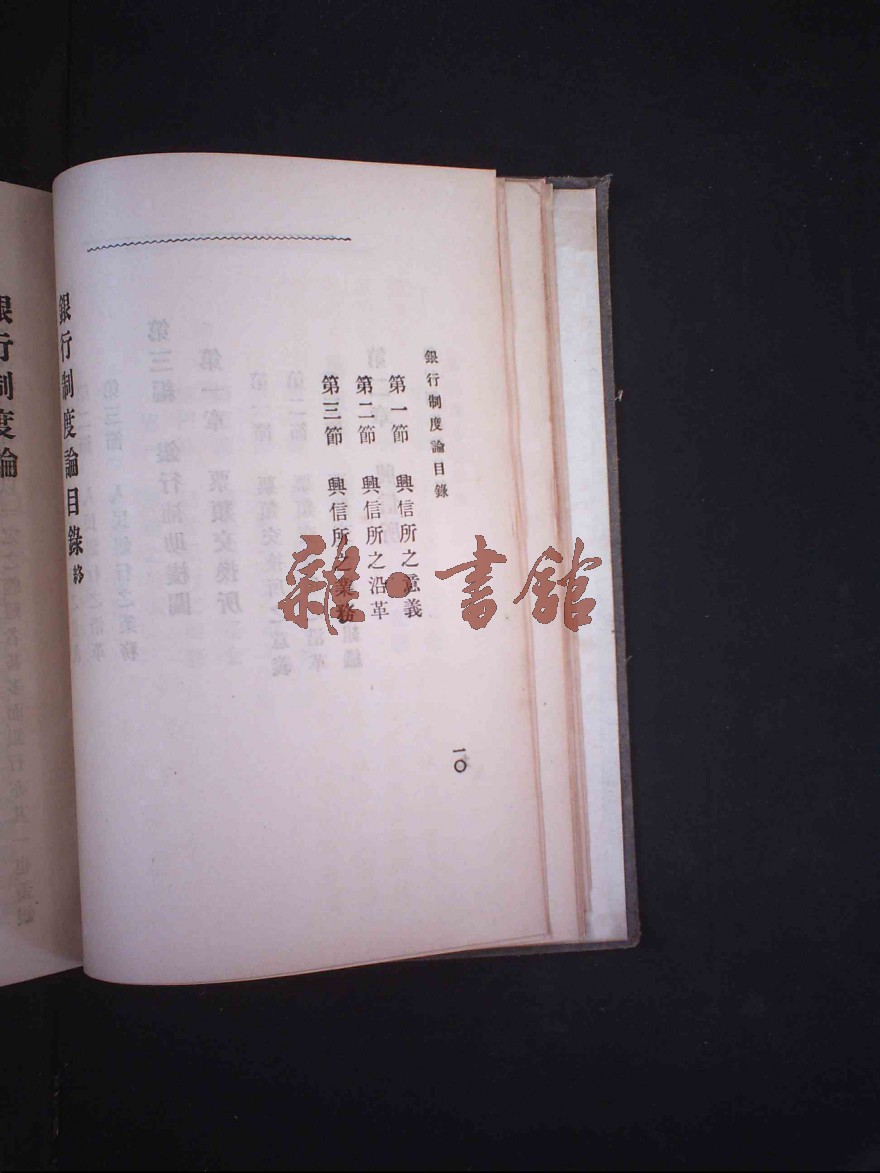 銀行制度論目錄
第一節 興信所之意義
第二節 興信所之沿革
第三節 興信所之業務
銀行制度論目錄終
一〇
銀行制度論
雜·書館